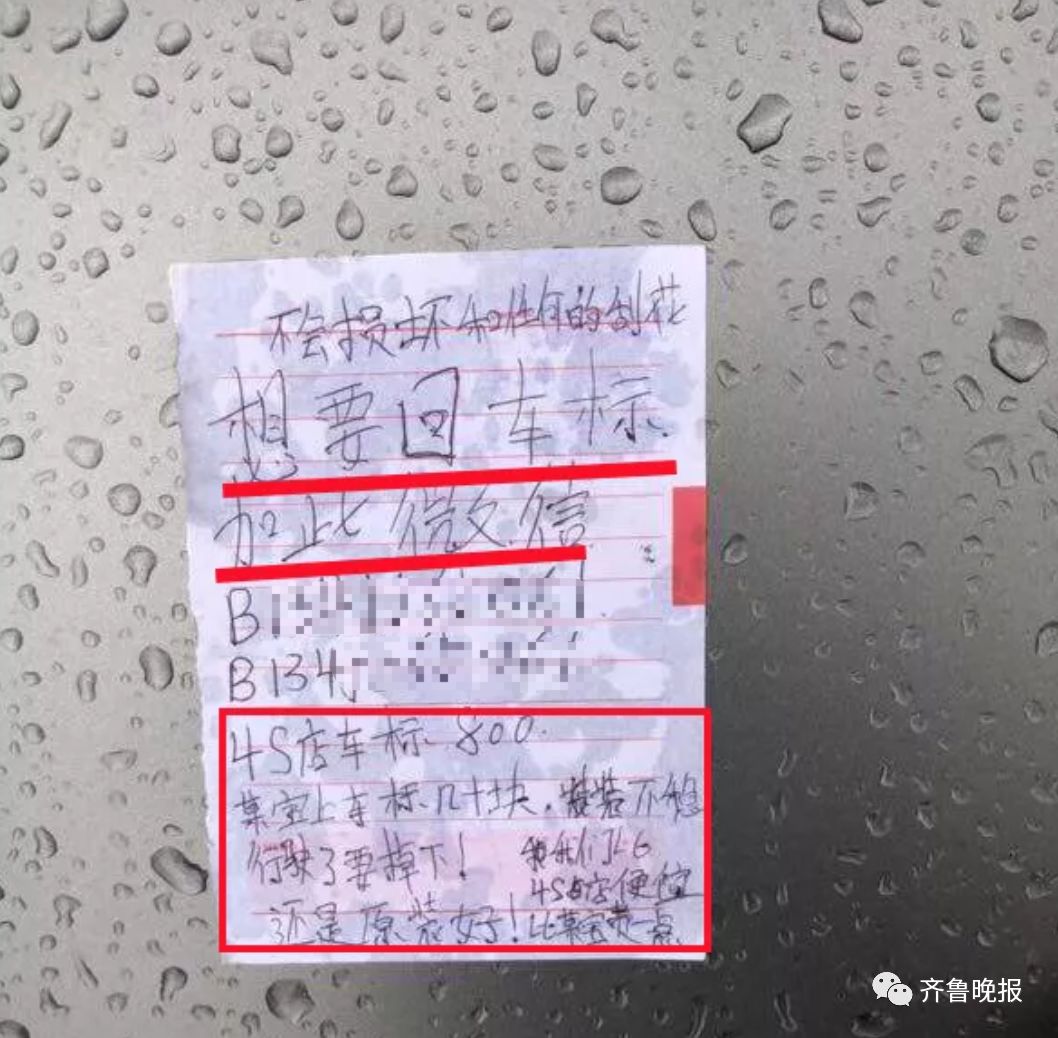 不会损坏和任何的刮花
想要回车标
加此微信
B
B134
4S店车标800.
某宝上车标几十块.装不够
行驶了要掉下!
我们比
4S店便宜
还是原装好!比某宝贵一点
齐鲁晚报